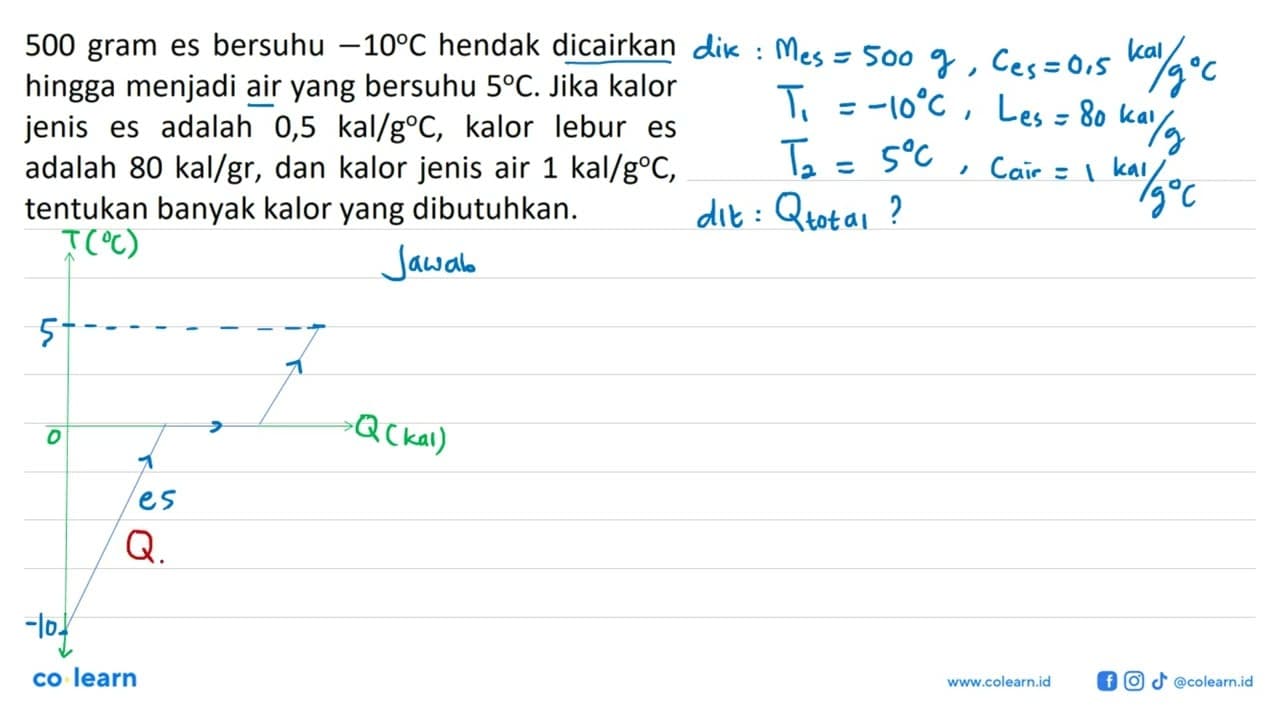 500 gram es bersuhu −10°C hendak dicairkan
hingga menjadi air yang bersuhu 5°C. Jika kalor
jenis es adalah 0,5 kal/g°C, kalor lebur es
adalah 80 kal/gr, dan kalor jenis air 1 kal/g°C,
tentukan banyak kalor yang dibutuhkan.
dik : Mes = 500 g , Ces = 0,5 kal/g°C
T1 = -10°C , Les = 80 kal/g
T2 = 5°C , Cair = 1 kal/g°C
dit : Qtotal ?
Jawab
T(°C)
5
0
Q(kal)
es
Q.
-10
co learn
www.colearn.id
@colearn.id